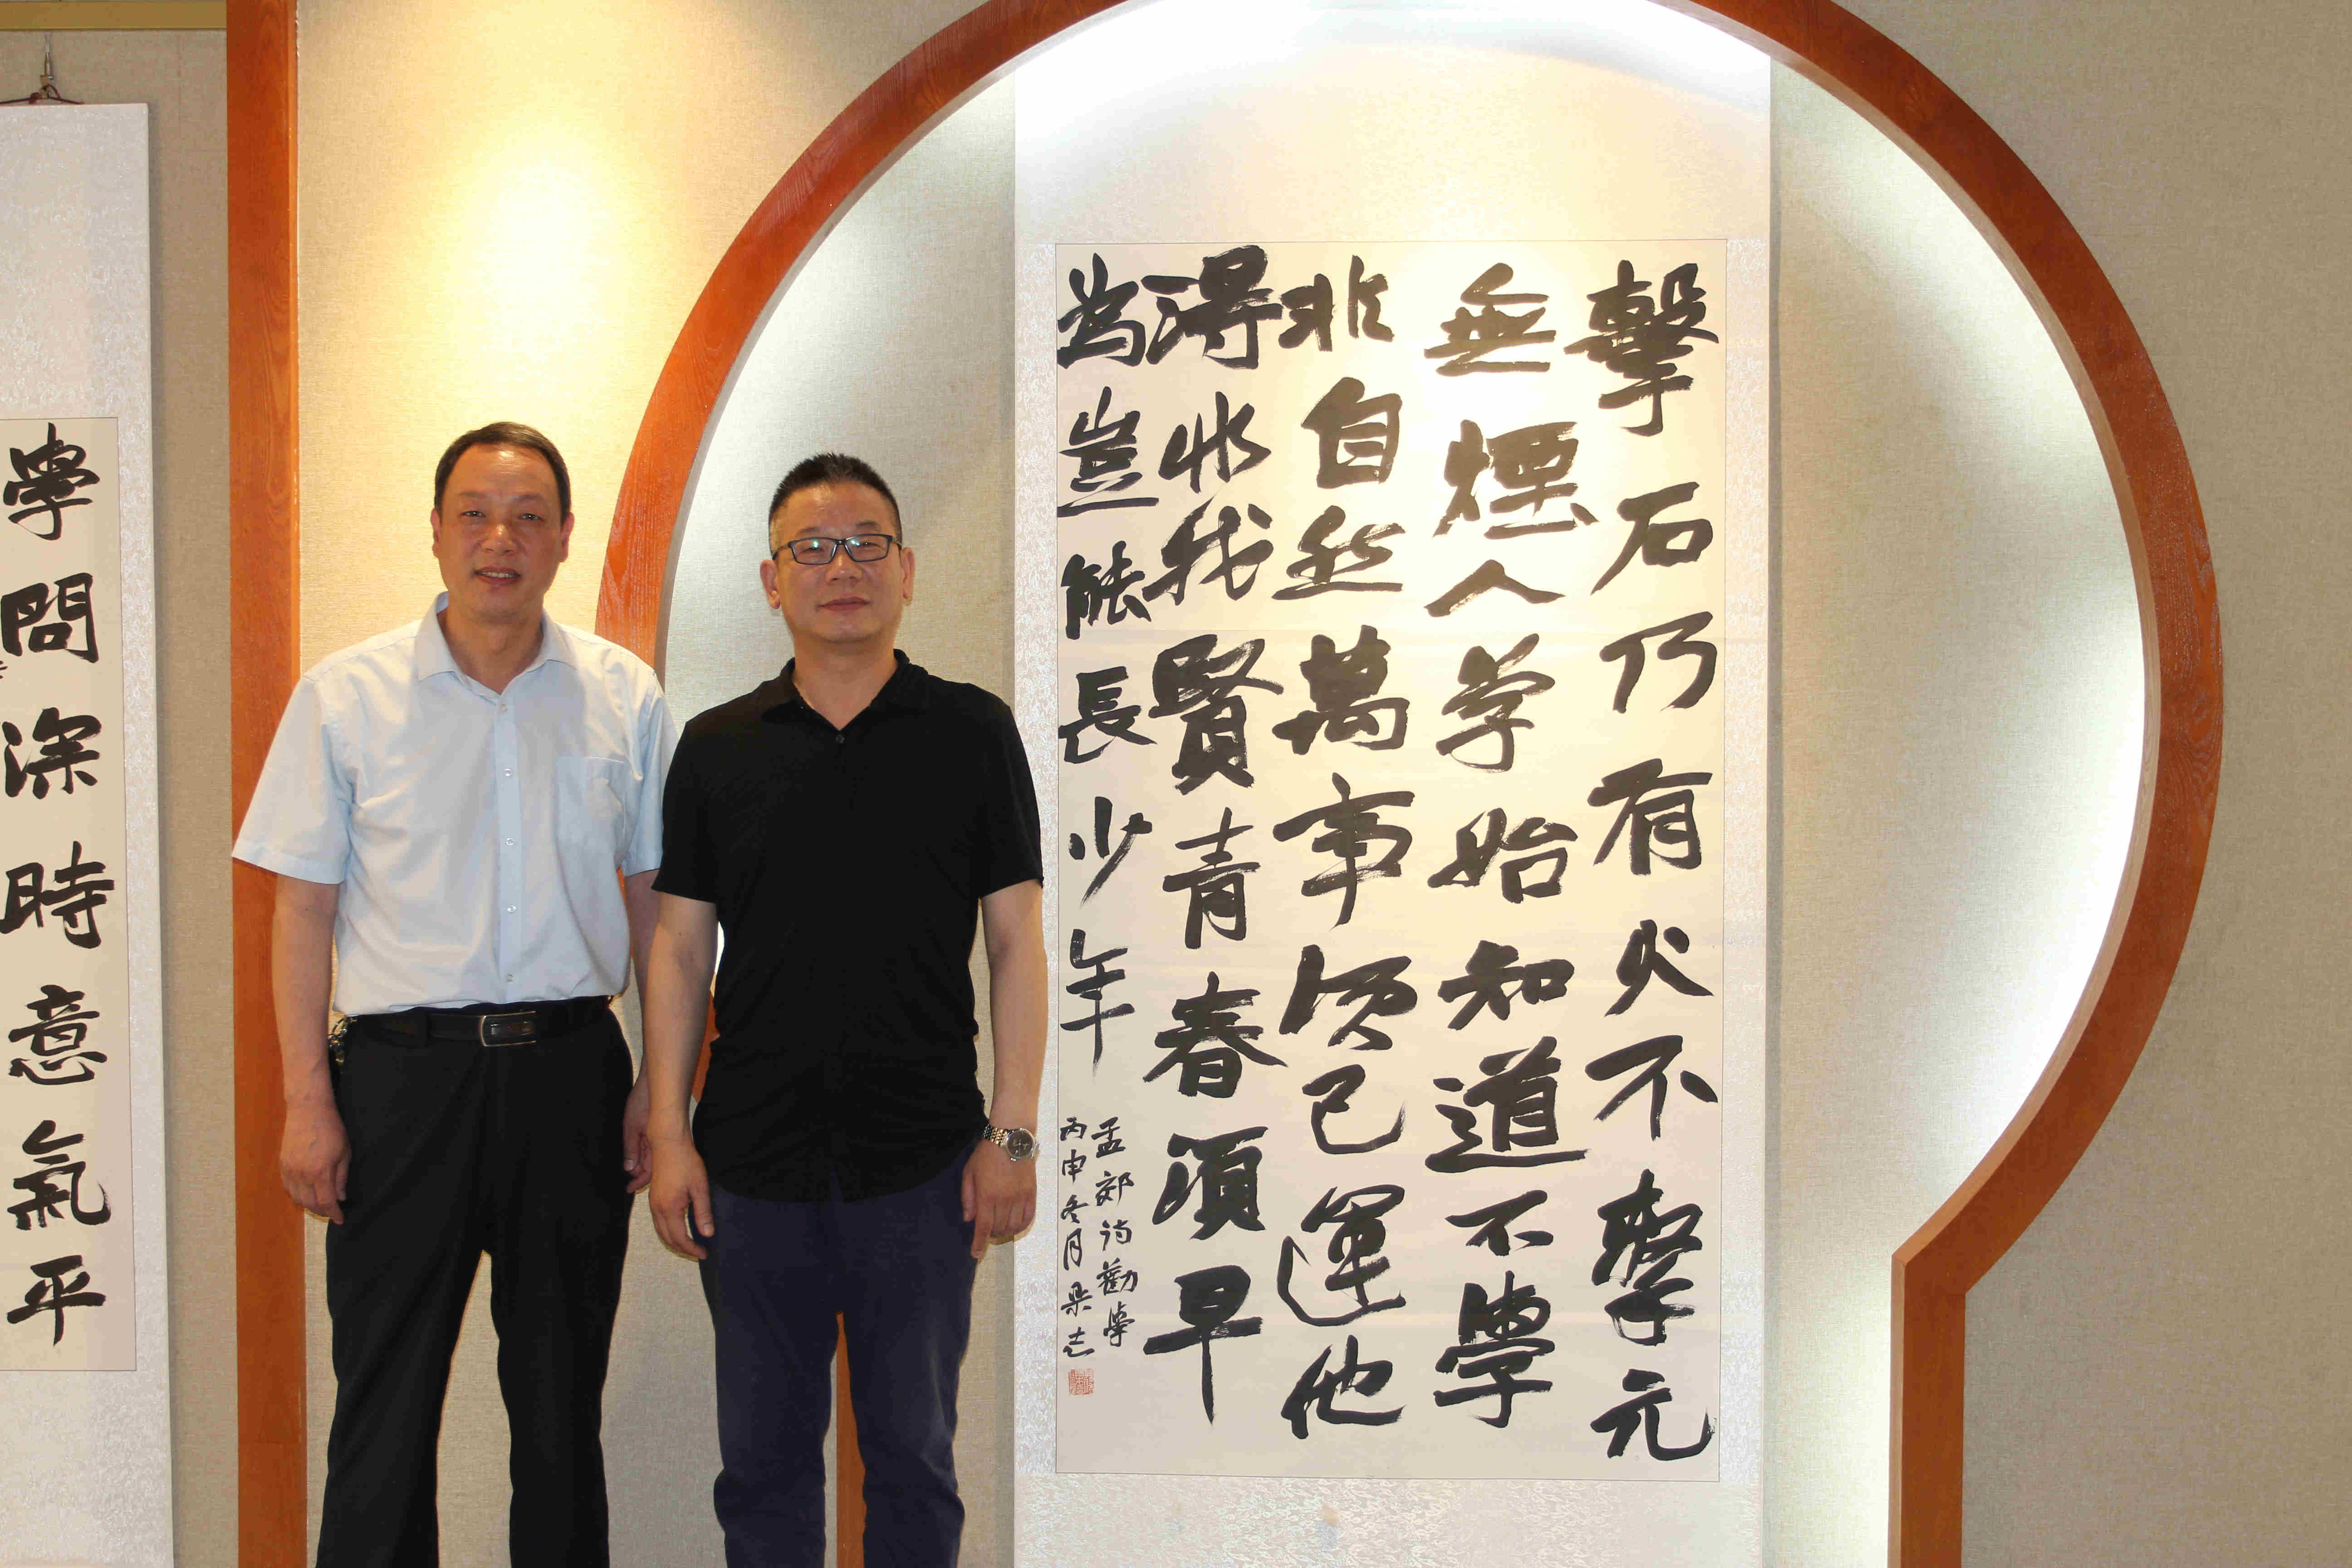 擊石乃有火不擊元
無煙人学始知道不學
非自然萬事須己運他
得非我賢青春須早
為豈能長少年
孟郊詩勸學
丙申冬月
學問深時意氣平